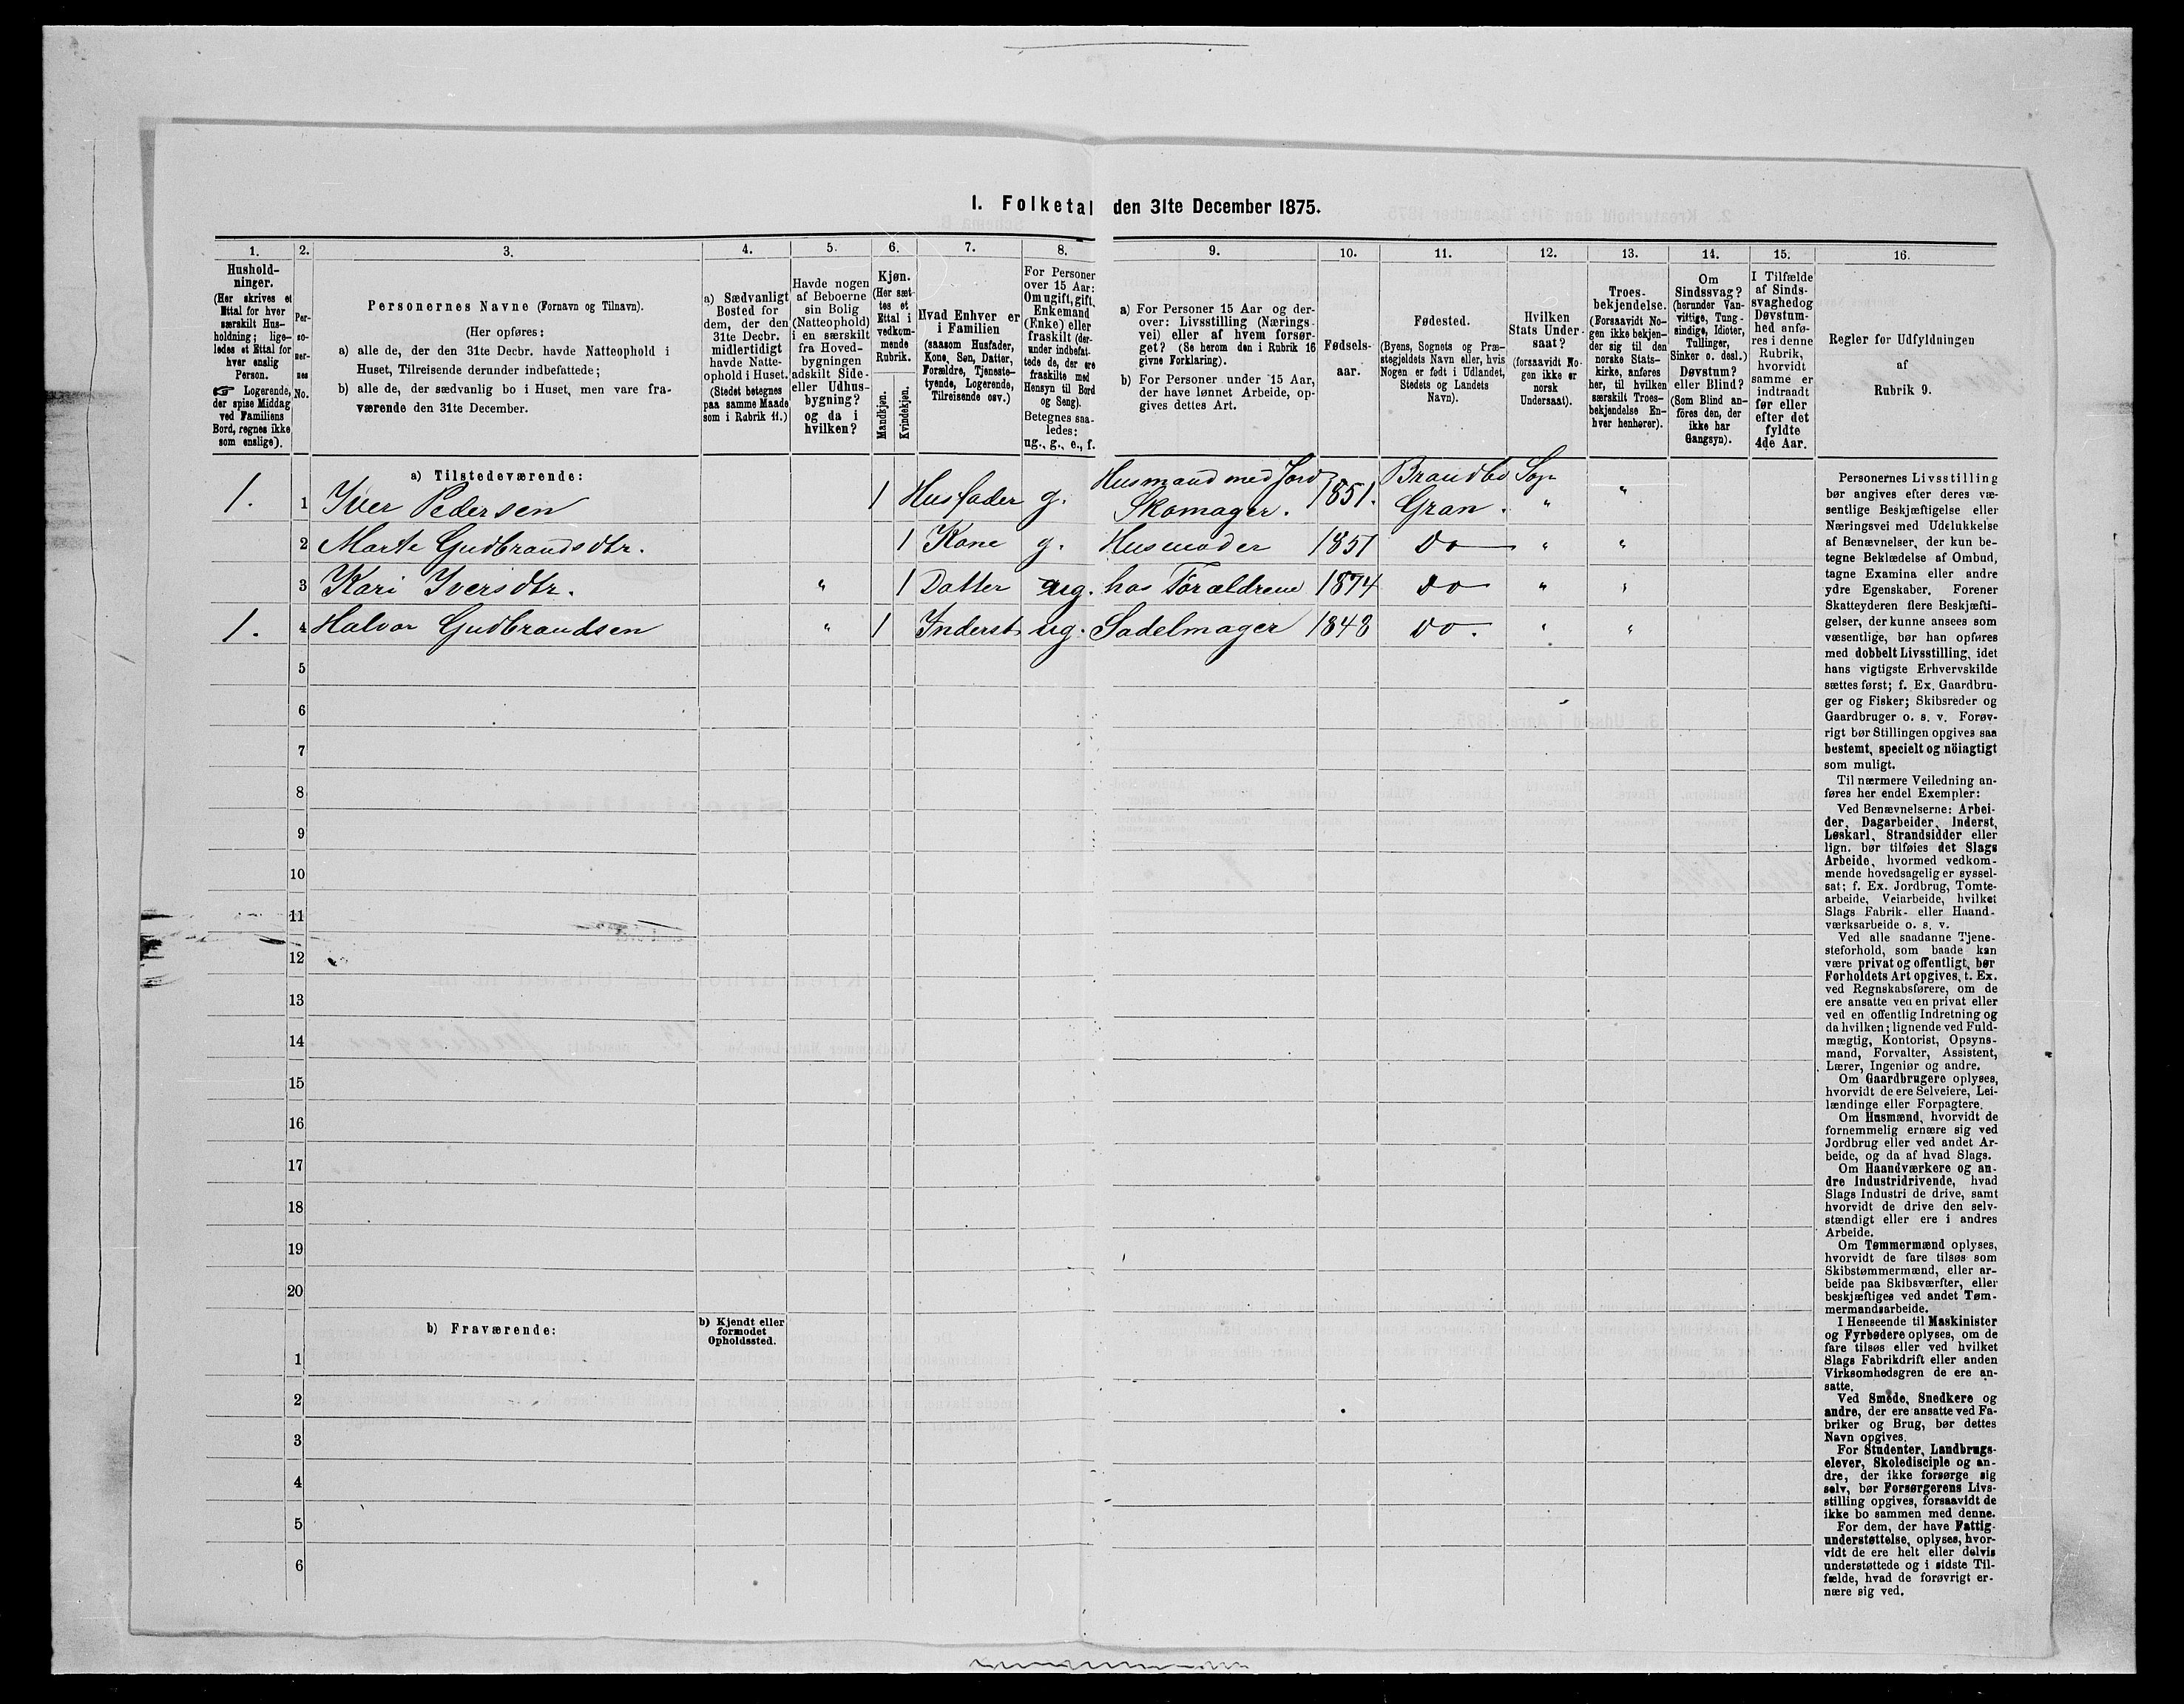 I. Folketal den 31te December 1875.
1. 2. 3. 4. 5. 6. 7. 8. 9. 10. 11. 12. 13. 14. 15. 16.
Hushold-
ninger.
(Her skrives et
Ettal for hver
særskilt Hus-
holdning; lige-
ledes et Ettal for
hver enslig
Person.
☞ Logerende,
der spise Middag
ved Familiens
Bord, regnes ikke
som enslige).
Per-
so-
ner-
nes
No.
Personernes Navne (Fornavn og Tilnavn).
(Her opføres:
a) alle de, der den 31te Decbr. havde Natteophold i
Huset, Tilreisende derunder indbefattede;
b) alle de, der sædvanlig bo i Huset, men vare fra-
værende den 31te December.
a) Sædvanligt
Bosted for
dem, der den
31te Decbr.
midlertidigt
havde Natte-
ophold i Huset.
(Stedet betegnes
paa samme Maade
som i Rubrik 11.)
Havde nogen
af Beboerne
sin Bolig
(Natteophold)
i en særskilt
fra Hoved-
bygningen
adskilt Side-
eller Udhus-
bygning?
og da i
hvilken?
Kjøn.
(Her sæt-
tes et
Ettal i
vedkom-
mende
Rubrik.
Mandkjøn.
Kvindekjøn.
Hvad Enhver er
i Familien
(saasom Husfader,
Kone, Søn, Datter,
Forældre, Tjeneste-
tyende, Logerende,
Tilreisende osv.)
For Personer
over 15 Aar:
Om ugift, gift,
Enkemand
(Enke) eller
fraskilt (der-
under indbefat-
tede de, der ere
fraskilte med
Hensyn til Bord
og Seng).
Betegnes saa-
ledes:
ug., g., e., f.
a) For Personer 15 Aar og der-
over: Livsstilling (Nærings-
vei) eller af hvem forsør-
get? (Se herom den i Rubrik 16
givne Forklaring).
b) For Personer under 15 Aar,
der have lønnet Arbeide, op-
gives dettes Art.
Fødsels-
aar.
Fødested.
(Byens, Sognets og Præ-
stegjeldets Navn eller, hvis
Nogen er født i Udlandet,
Stedets og Landets
Navn).
Hvilken
Stats Under-
saat?
(forsaavidt No-
gen ikke er
norsk
Undersaat).
Troes-
bekjendelse.
(Forsaavidt No-
gen ikke bekjen-
der sig til den
norske Stats-
kirke, anføres
her, til hvilken
særskilt Troes-
bekjendelse En-
hver henhører).
Om
Sindssvag?
(herunder Van-
vittige, Tung-
sindige, Idioter,
Tullinger,
Sinker o. desl.)
Døvstum?
eller Blind?
(Som Blind an-
føres den, der
ikke har
Gangsyn).
I Tilfælde
af Sinds-
svaghed og
Døvstum-
hed anfø-
res i denne
Rubrik,
hvorvidt
samme er
indtraadt
før eller
efter det
fyldte
4de Aar.
Regler for Udfyldningen
af
Rubrik 9.
a) Tilstedeværende:
1. 1 Iver Pedersen 1 Husfader g. Husmand med Jord Skomager. 1851. Brandbo Sogn Gran. " "
2 Marte Gudbrandsdtr. 1 Kone g. Husmoder 1851 Do " "
3 Kari Iversdtr. " 1 Datter ug. hos Forældrene 1874 Do " "
1. 4 Halvor Gudbrandsen " 1 Inderst ug. Sadelmager 1848 Do. " "
5
6
7
8
9
10
11
12
13
14
15
16
17
18
19
20
b) Fraværende:
b) Kjendt eller
formodet
Opholdssted.
1
2
3
4
5
6
Personernes Livsstilling
bør angives efter deres væ-
sentlige Beskjæftigelse eller
Næringsvei med Udelukkelse
af Benævnelser, der kun be-
tegne Beklædelse af Ombud,
tagne Examina eller andre
ydre Egenskaber. Forener
Skatteyderen flere Beskjæfti-
gelser, der kunne ansees som
væsentlige, bør han opføres
med dobbelt Livsstilling, idet
hans vigtigste Erhvervskilde
sættes først; f. Ex. Gaardbru-
ger og Fisker; Skibsreder og
Gaardbruger o. s. v. Forøv-
rigt bør Stillingen opgives saa
bestemt, specielt og nöiagtigt
som muligt.
Til nærmere Veiledning an-
føres her endel Exempler:
Ved Benævnelserne: Arbei-
der, Dagarbeider, Inderst,
Løskarl, Strandsidder eller
lign. bør tilføies det Slags
Arbeide, hvormed vedkom-
mende hovedsagelig er syssel-
sat; f. Ex. Jordbrug, Tomte-
arbeide, Veiarbeide, hvilket
Slags Fabrik- eller Haand-
værksarbeide o. s. v.
Ved alle saadanne Tjene-
steforhold, som baade kan
være privat og offentligt, bør
Forholdets Art opgives, t. Ex.
ved Regnskabsførere, om de
ere ansatte ved en privat eller
ved en offentlig Indretning og
da hvilken; lignende ved Fuld-
mægtig, Kontorist, Opsyns-
mand, Forvalter, Assistent,
Lærer, Ingeniør og andre.
Om Gaardbrugere oplyses,
hvorvidt de ere Selveiere, Lei-
lændinge eller Forpagtere.
Om Husmænd, hvorvidt de
fornemmelig ernære sig ved
Jordbrug eller ved andet Ar-
beide, og da af hvad Slags.
Om Haandværkere og an-
dre Industridrivende, hvad
Slags Industri de drive, samt
hvorvidt de drive den selv-
stændigt eller ere i andres
Arbeide.
Om Tømmermænd oplyses,
hvorvidt de fare tilsøs som
Skibstømmermænd, eller ar-
beide paa Skibsværfter, eller
beskjæftiges ved andet Tøm-
mermandsarbeide.
I Henseende til Maskinister
og Fyrbødere oplyses, om de
fare tilsøs eller ved hvilket
Slags Fabrikdrift eller anden
Virksomhedsgren de ere an-
satte.
Ved Smede, Snedkere og
andre, der ere ansatte ved Fa-
briker og Brug, bør dettes
Navn opgives.
For Studenter, Landbrugs-
elever, Skoledisciple og an-
dre, der ikke forsørge sig
selv, bør Forsørgerens Livs-
stilling opgives, forsaavidt de
ikke bo sammen med denne.
For dem, der have Fattig-
understøttelse, oplyses, hvor-
vidt de ere helt eller delvis
understøttede og i sidste Til-
fælde, hvad de forøvrigt er-
nære sig ved.